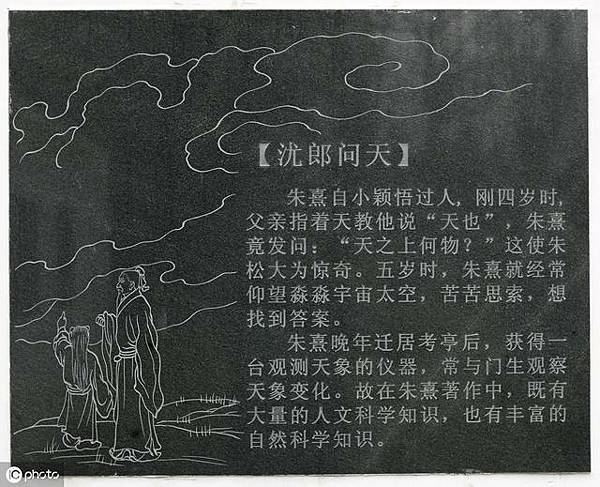 【沈郎问天】
朱熹自小颖悟过人，刚四岁时，
父亲指着天教他说“天也”，朱熹
竟发问：“天之上何物？”这使朱
松大为惊奇。五岁时，朱熹就经常
仰望淼淼宇宙太空，苦苦思索，想
找到答案。
朱熹晚年迁居考亭后，获得一
台观测天象的仪器，常与门生观察
天象变化。故在朱熹著作中，既有
大量的人文科学知识，也有丰富的
自然科学知识。
photo